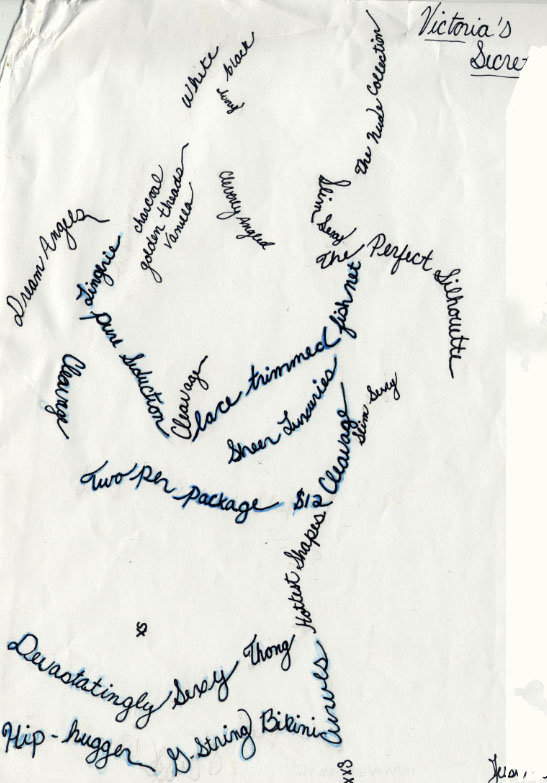 Victoria's
Secre
White
black
The Nude Collection
charcoal
golden threads
Vanilla
Cleverly Angled
Slim
Sexy
The Perfect Silhouette
Dream Angels
Lingerie
Pure Seduction
Cleavage
Cleavage
lace trimmed fishnet
Sheer Luxuries
Cleavage
Slim Sexy
Two per package $12
Hottest Shapes
xs
Devastatingly Sexy Thong
Curves
Hip-hugger G-String Bikini